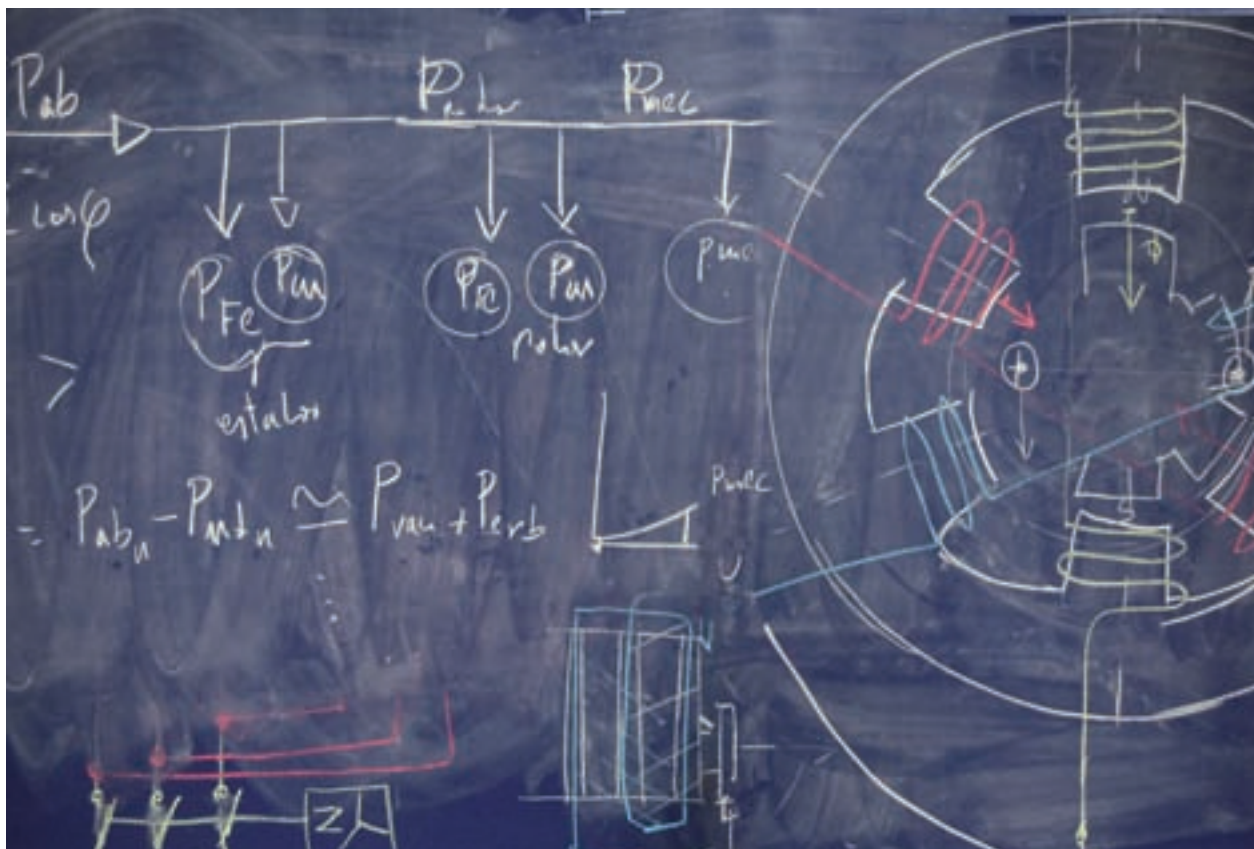 Pab Protor Pmec
cos φ
PFe Pcu PFe Pcu Pmec
rotor
estator
= Pabn - Pmtn ≅ Pvau + Perb
Pmec
U
N
Φ
S
Z